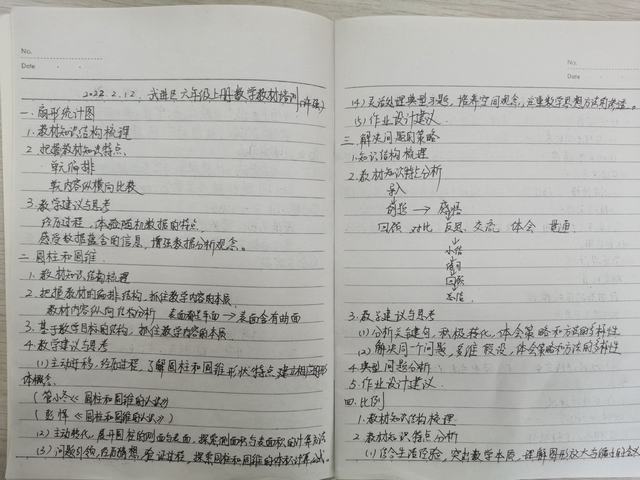 No.
Date
2022.2.12. 武进区六年级上册数学教材培训
一. 扇形统计图
1. 教材知识结构梳理
2. 把握教材知识特点.
单元编排
单元内容纵横向比较
3. 教学建议与思考
经历过程, 体验随机数据的特点.
感受数据蕴含的信息, 增强数据分析观念.
二. 圆柱和圆锥.
1. 教材知识结构梳理
2. 把握教材的编排结构, 抓住教学内容的本质.
教材内容纵向结构分析 表面都是平面→表面含有曲面
3. 基于教学目标的结构, 抓住教学内容的本质.
4. 教学建议与思考
(1) 主动迁移, 经历过程, 了解圆柱和圆锥形状特点, 建立相应的形
体概念.
(《圆柱和圆锥的认识》)
(彭恽《圆柱和圆锥的认识》)
(2) 主动转化, 展开圆柱的侧面与表面, 探索侧面积与表面积的计算方法
(3) 问题引领, 经历猜想, 验证过程, 探索圆柱和圆锥的体积计算公式.
No.
Date
(4) 灵活处理典型习题, 培养空间观念, 注重数学思想方法的渗透.
(5) 作业设计建议.
三. 解决问题的策略
1. 知识结构梳理
2. 教材知识特点分析
导入
前延 → 感悟
回顾 对比 反思 交流 体会
小结
练习
回顾
总结
3. 教学建议与思考
(1) 分析关键句, 积极转化, 体会策略和方法的多样性
(2) 解决同一个问题, 多维假设, 体会策略和方法的多样性
4. 典型问题分析
5. 作业设计建议.
四. 比例
1. 教材知识结构梳理
2. 教材知识特点分析
(1) 结合生活经验, 突出数学本质, 理解图形放大与缩小的含义